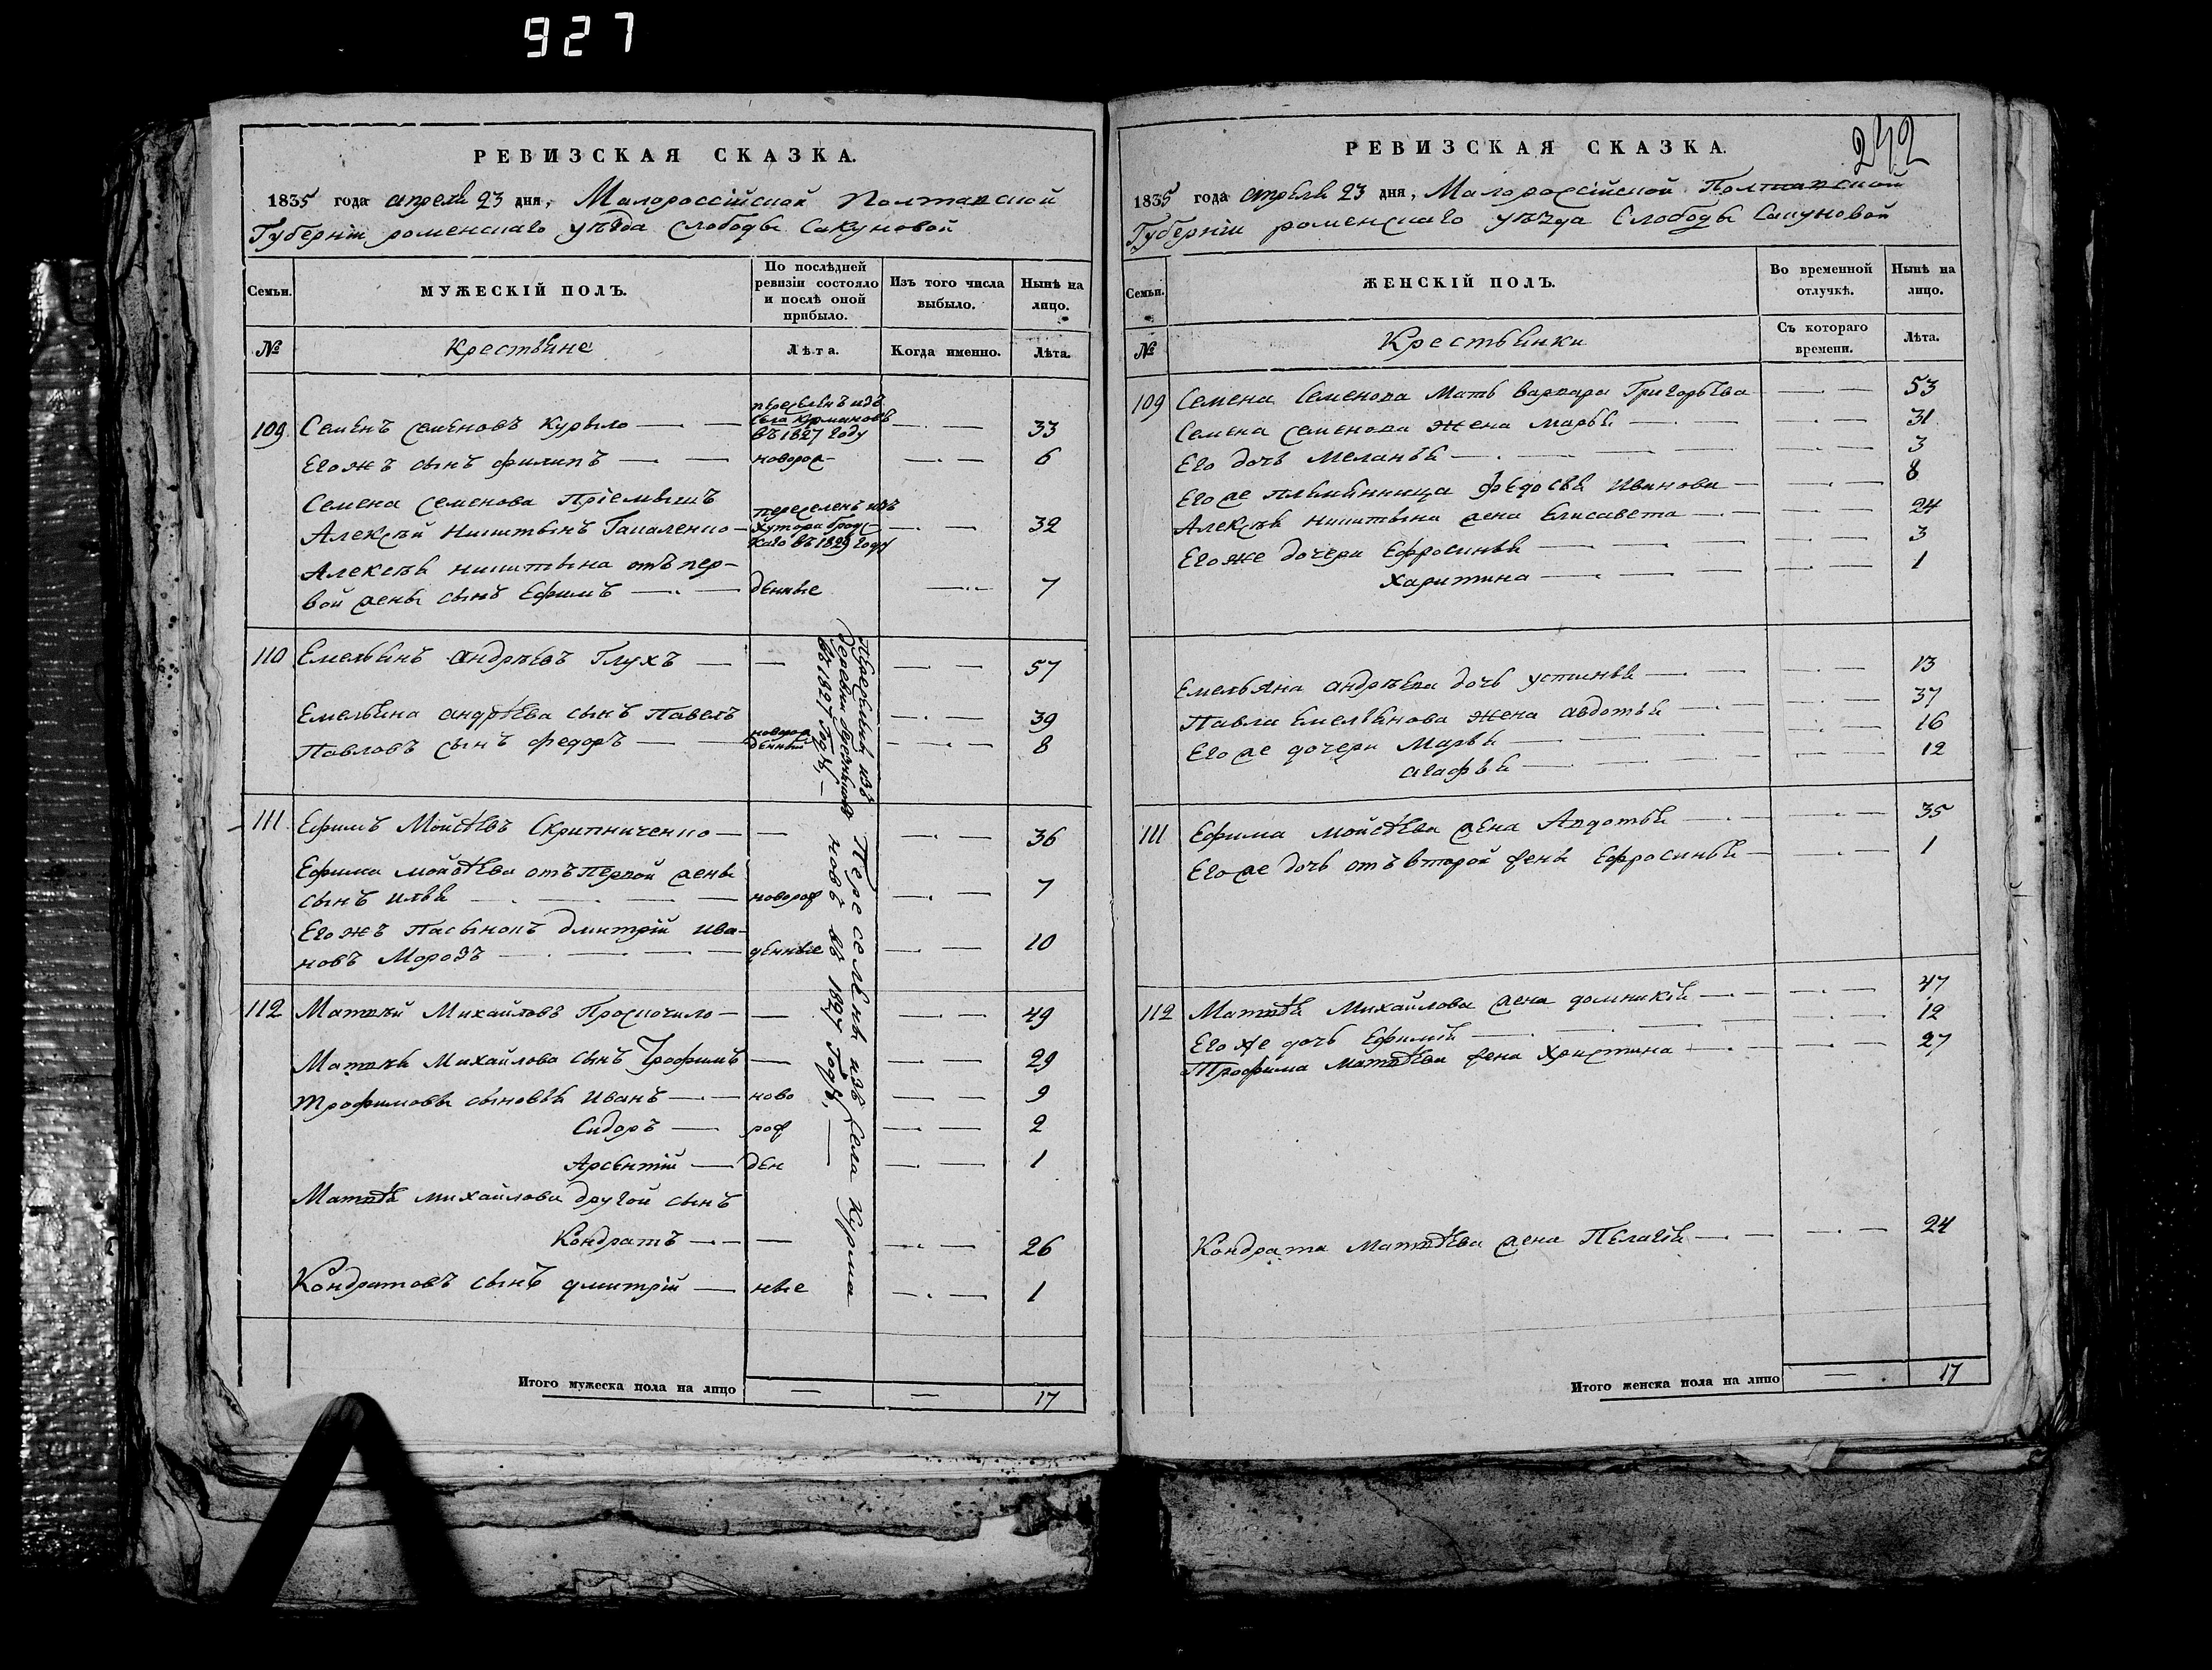 927
РЕВИЗСКАЯ СКАЗКА.
1835 года апреля 23 дня, Малороссійской Полтавской
Губерніи роменскаго уѣзда слободы Сакуновой
Семьи.
МУЖЕСКІЙ ПОЛЪ.
По послѣдней ревизіи состояло и послѣ оной прибыло.
Изъ того числа выбыло.
Нынѣ на лицо.
№
Крестьяне
Лѣта.
Когда именно.
Лѣта.
109. Семенъ Семеновъ Курыло — переселенъ изъ села Курмановъ въ 1827 году — 33
Его жъ сынъ филипъ — новорож — 6
Семена Семенова Пріемышъ
Алексѣй Никитинъ Гапаленко — переселенъ изъ Хутора въ 1829 году — 32
Алексѣя никитина отъ пер-
вой жены сынъ Ефимъ — денные — 7
110 Емельянъ андрѣевъ Глухъ — 57
Емельяна андрѣева сынъ Павелъ — 39
Павловъ сынъ федоръ — новорожденный — 8
Переселены изъ деревни въ 1827 году, —
111. Ефимъ Мойсѣевъ Скрипниченко — 36
Ефима мойсѣева отъ первой жены
сынъ илья — новорож — 7
Его жъ пасынокъ дмитрій ива-
новъ Морозъ — денные — 10
112 Матвѣй Михайловъ Проскочило — 49
Матвѣя Михайлова сынъ Трофимъ — 29
Трофимовы сыновья Иванъ — ново — 9
Сидоръ — рож — 2
Арсентій — ден — 1
Матвѣя михайлова другой сынъ
Кондратъ — 26
Кондратовъ сынъ дмитрій — ные — 1
Переселены изъ села Курма
новъ въ 1827 году, —
Итого мужеска пола на лицо — — 17
242
РЕВИЗСКАЯ СКАЗКА.
1835 года апреля 23 дня, Малороссійской Полтавской
Губерніи роменскаго уѣзда Слободы Сакуновой
Семьи.
ЖЕНСКІЙ ПОЛЪ.
Во временной отлучкѣ.
Нынѣ на лицо.
№
Крестьянки
Съ котораго времени.
Лѣта.
109 Семена Семенова Мать варвара Григорьева — 53
Семена семенова жена марья — 31
Его дочь меланья — 3
Его же племянница федосья Иванова — 8
Алексѣя никитина жена Елисавета — 24
Его же дочери Ефросинья — 3
Харитина — 1
Емельяна андрѣева дочь устинья — 13
Павла Емельянова жена авдотья — 37
Его же дочери Марья — 16
агафья — 12
111 Ефима мойсѣева жена Авдотья — 35
Его же дочь отъ второй жены Ефросинья — 1
112 Матвѣя Михайлова жена домникія — 47
Его же дочь Ефимія — 12
Трофима матвѣева жена Христина — 27
Кондрата матвѣева жена Пелагія — 24
Итого женска пола на лицо — 17